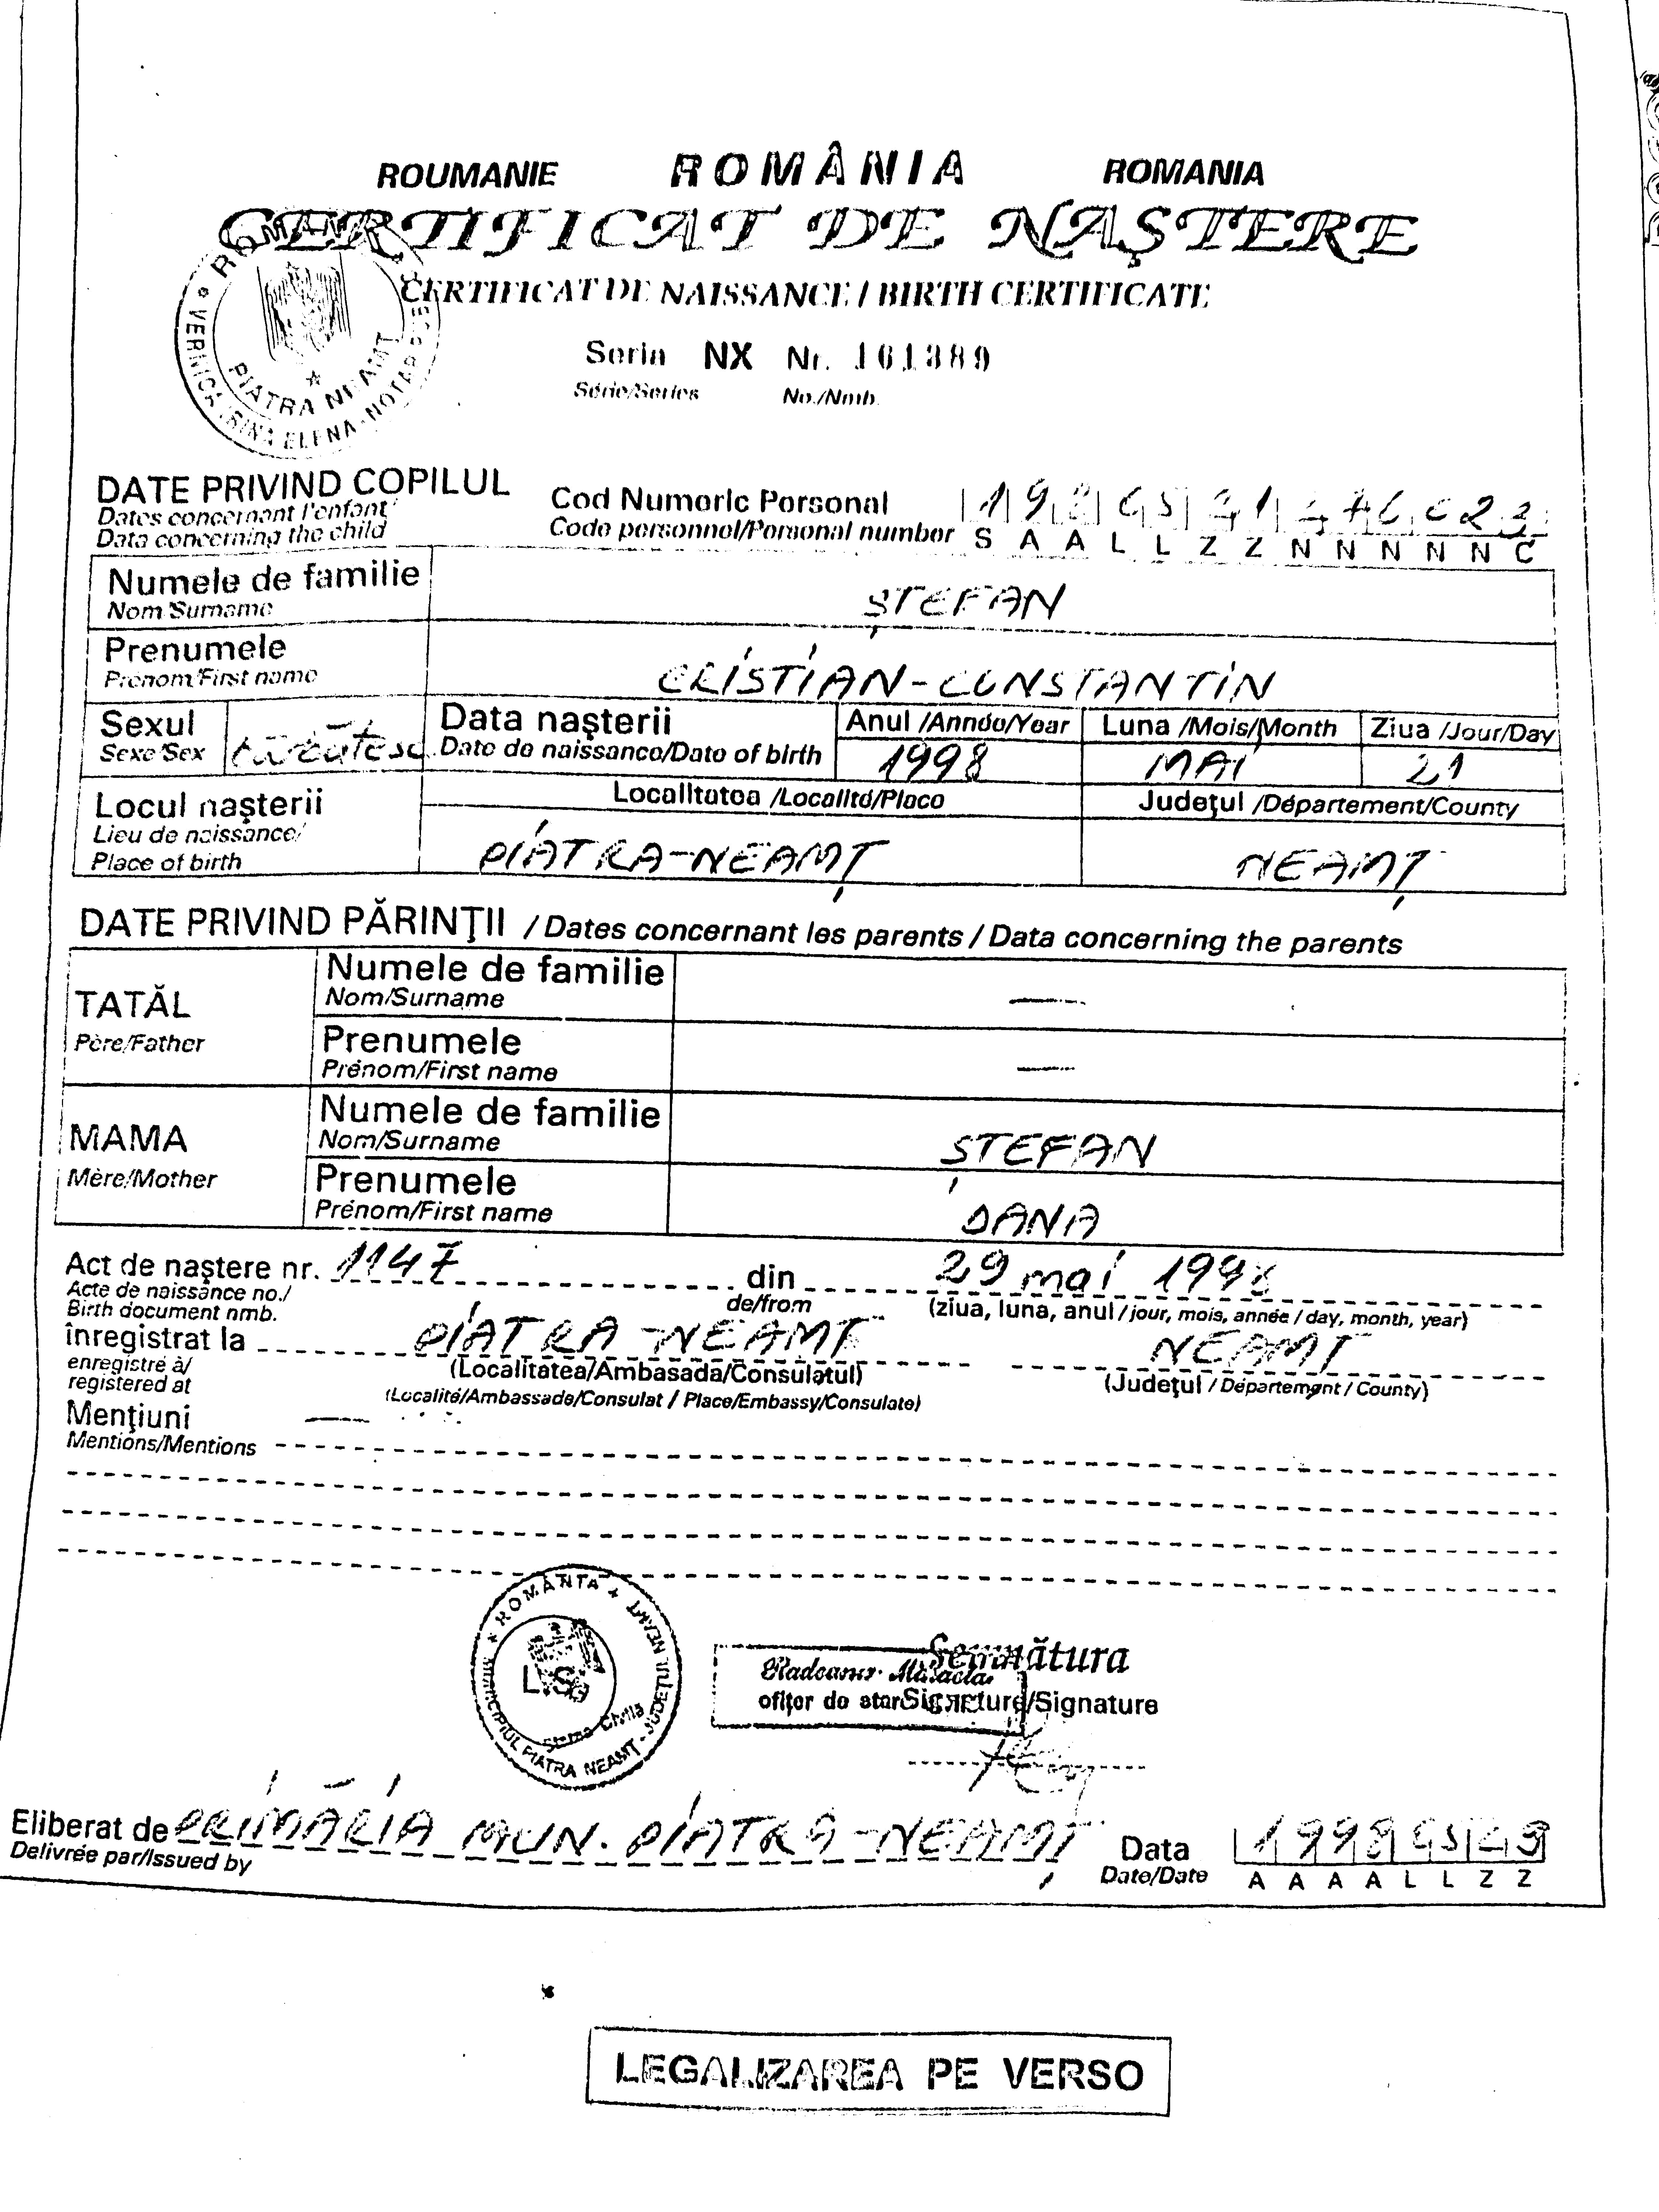 ROUMANIE ROMÂNIA ROMANIA
CERTIFICAT DE NAŞTERE
CERTIFICAT DE NAISSANCE / BIRTH CERTIFICATE
Seria NX Nr. 161389
Série/Series No./Nmb.
ROMANIA
PIATRA NEAMT
VERNICA IRINA ELENA - NOTAR
DATE PRIVIND COPILUL
Dates concernant l'enfant
Data concerning the child
Cod Numeric Personal
Code personnel/Personal number
S A A L L Z Z N N N N N C
Numele de familie
Nom/Surname
ŞTEFAN
Prenumele
Prénom/First name
CRISTIAN-CONSTANTIN
Sexul
Sexe/Sex
bărbătesc
Data naşterii
Date de naissance/Date of birth
Anul /Année/Year Luna /Mois/Month Ziua /Jour/Day
1998 MAI 21
Locul naşterii
Lieu de naissance/
Place of birth
Localitatea /Localité/Place Judeţul /Département/County
PIATRA-NEAMŢ NEAMŢ
DATE PRIVIND PĂRINŢII / Dates concernant les parents / Data concerning the parents
TATĂL
Père/Father
Numele de familie
Nom/Surname
—
Prenumele
Prénom/First name
—
MAMA
Mère/Mother
Numele de familie
Nom/Surname
ŞTEFAN
Prenumele
Prénom/First name
DANA
Act de naştere nr. 1147 din 29 mai 1998
Acte de naissance no./
Birth document nmb.
de/from (ziua, luna, anul / jour, mois, année / day, month, year)
înregistrat la PIATRA-NEAMŢ NEAMŢ
enregistré à/
registered at
(Localitatea/Ambasada/Consulatul) (Judeţul / Département / County)
(Localité/Ambassade/Consulat / Place/Embassy/Consulate)
Menţiuni —
Mentions/Mentions
ROMÂNIA
JUDEŢUL NEAMŢ
MUNICIPIUL PIATRA NEAMŢ
Starea Civilă
L.S.
Semnătura
ofiţer de stare
Signature/Signature
Eliberat de PRIMĂRIA MUN. PIATRA-NEAMŢ
Delivrée par/Issued by
Data 19980529
Date/Date A A A A L L Z Z
LEGALIZAREA PE VERSO